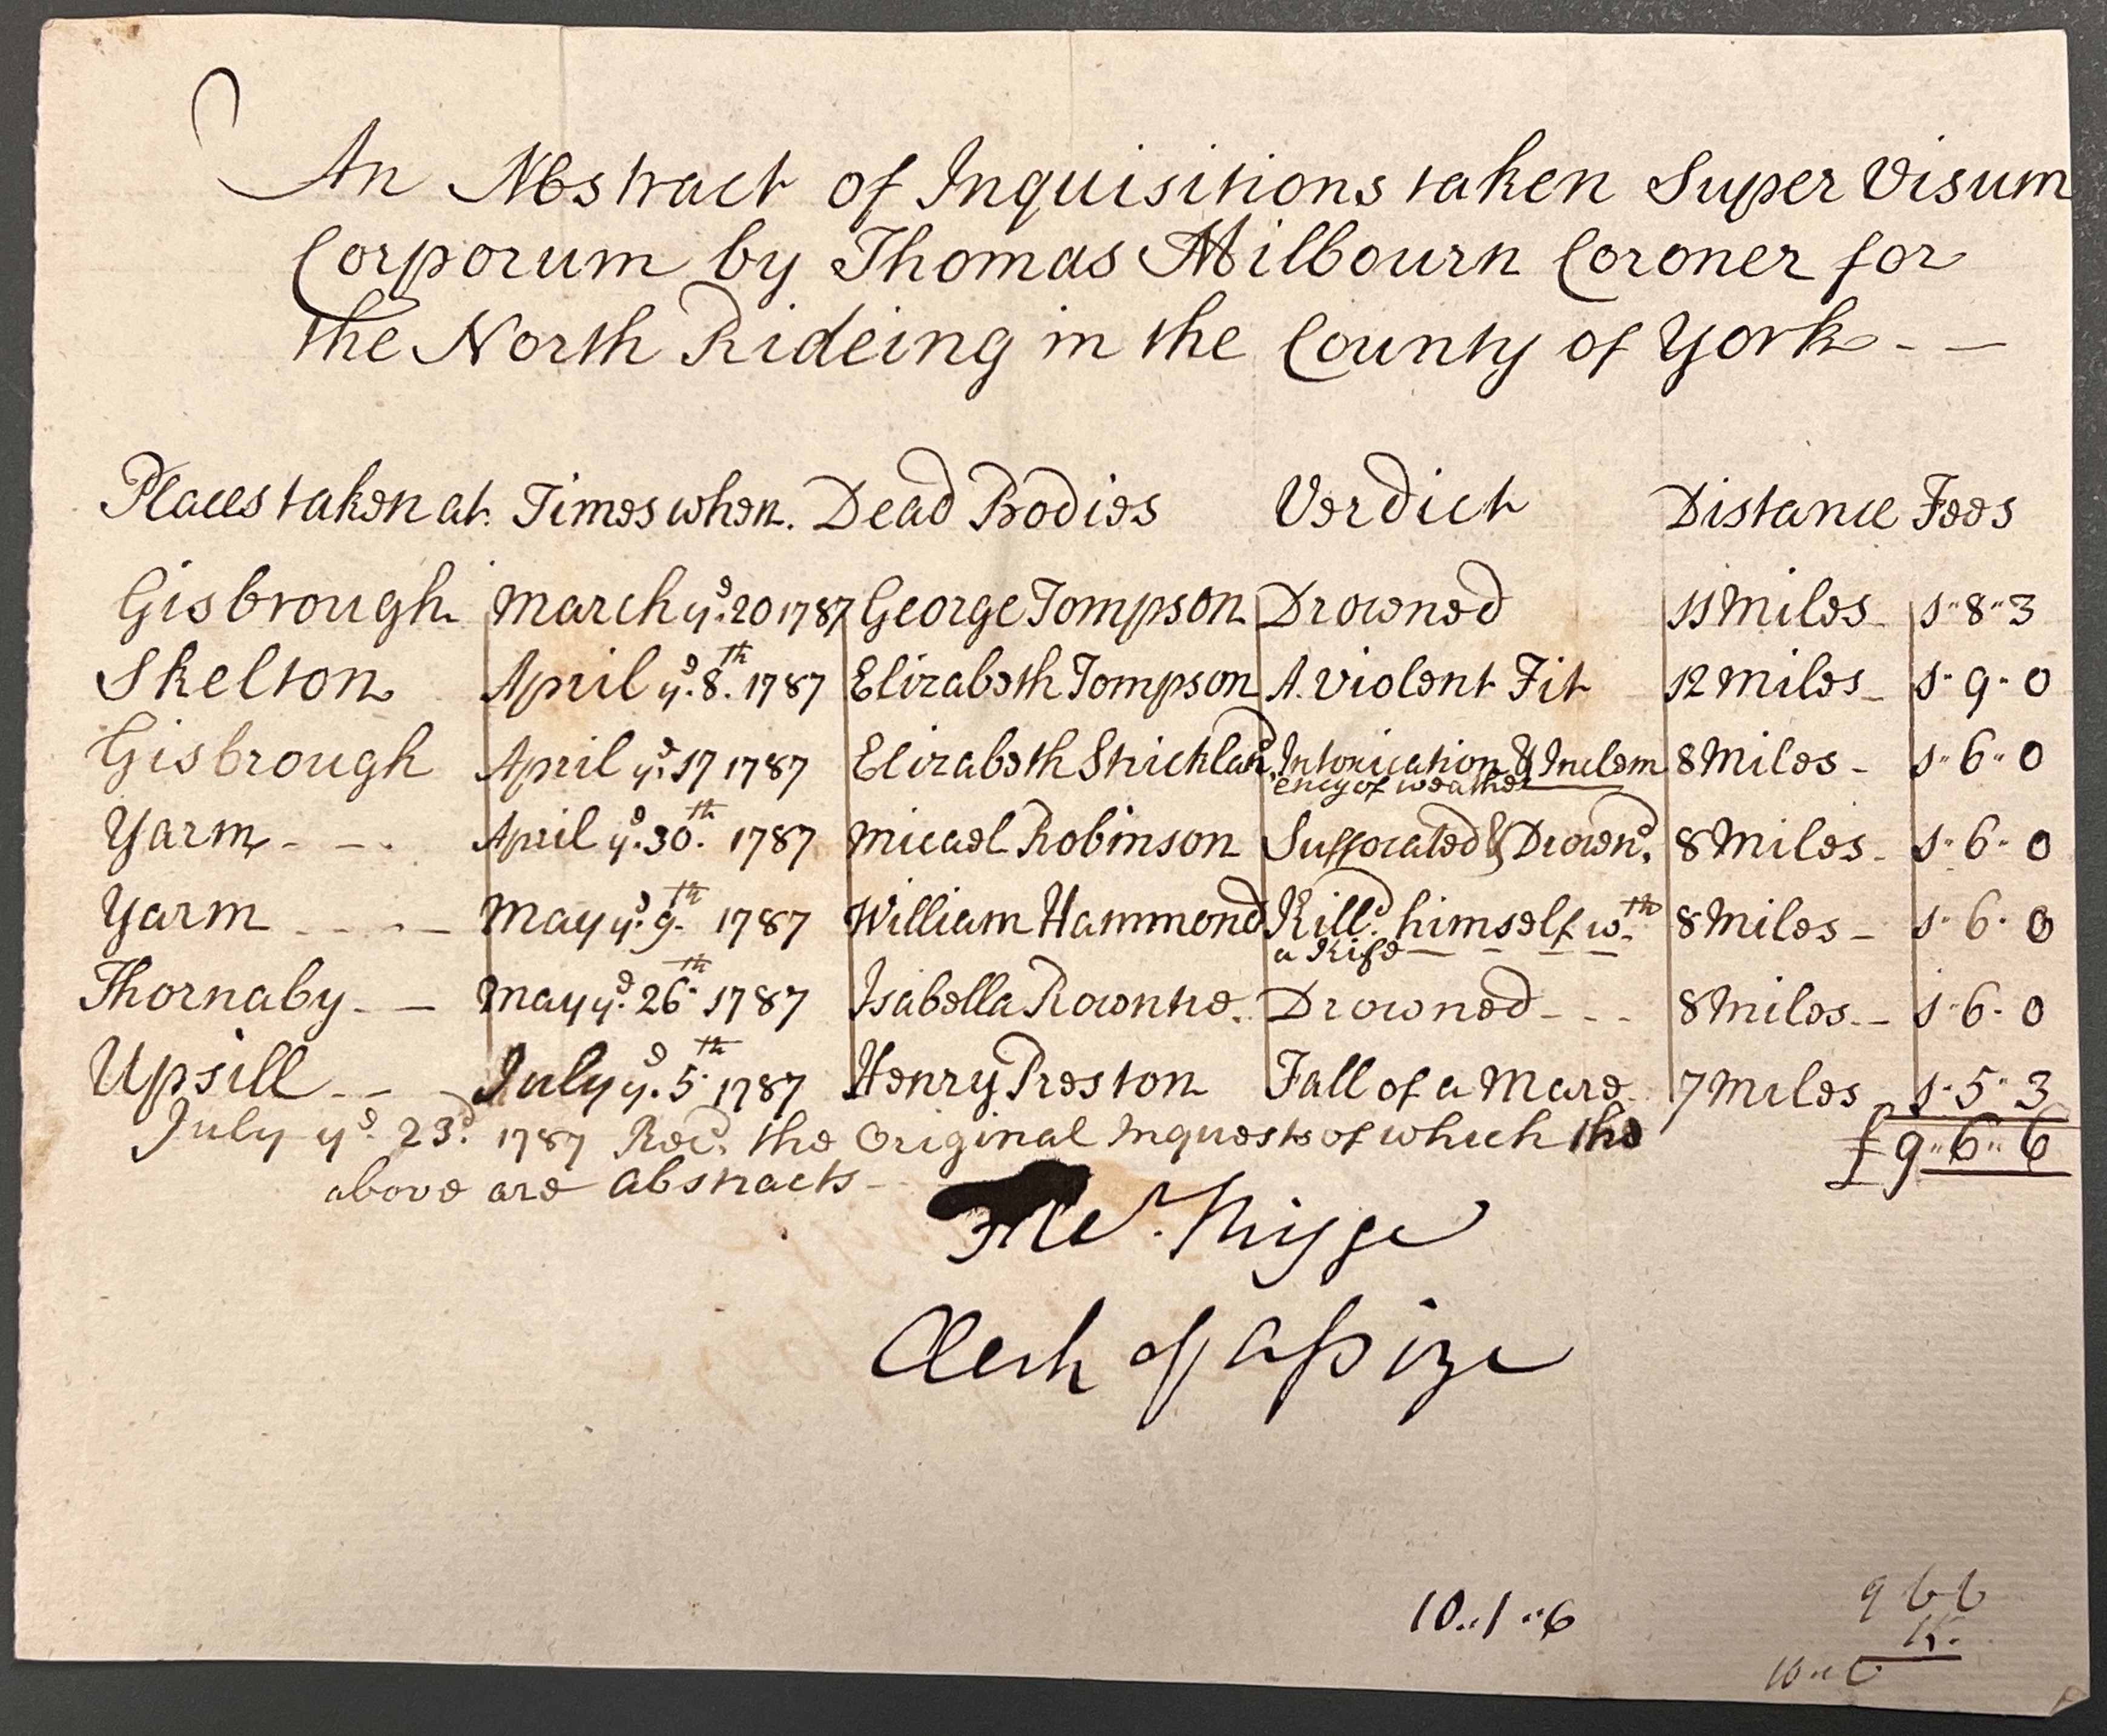 An Abstract of Inquisitions taken Super Visum
Corporum by Thomas Milbourn Coroner for
the North Rideing in the County of York - -
Places taken at. Times when. Dead Bodies Verdict Distance Fees
Gisbrough March ye. 20 1787 George Tompson Drowned 11 Miles 1 " 8 " 3
Skelton April ye. 8th. 1787 Elizabeth Tompson A. Violent Fit 12 Miles 1 - 9 - 0
Gisbrough April ye. 17 1787 Elizabeth Stricklan'd. Intoxication & Inclem 8 Miles - 1 " 6 " 0
ency of weather
Yarm - - - April ye. 30th. 1787 Micael Robinson Suffocated & Drown'd. 8 Miles - 1 - 6 - 0
Yarm - - - - May ye. 9th 1787 William Hammond Kill'd. himself wth. 8 Miles - 1 - 6 - 0
a Kife - - - -
Thornaby - - May ye. 26th 1787 Isabella Rowntre. Drowned - - - 8 Miles. - 1 " 6 - 0
Upsill - - July ye. 5th 1787 Henry Preston Fall of a Mare 7 Miles 1 - 5 " 3
July ye. 23d. 1787 Recd. the Original Inquests of which the £ 9 " 6 " 6
above are abstracts -
Clerk of Assize
10 .. 1 .. 6
9 6 6
15.